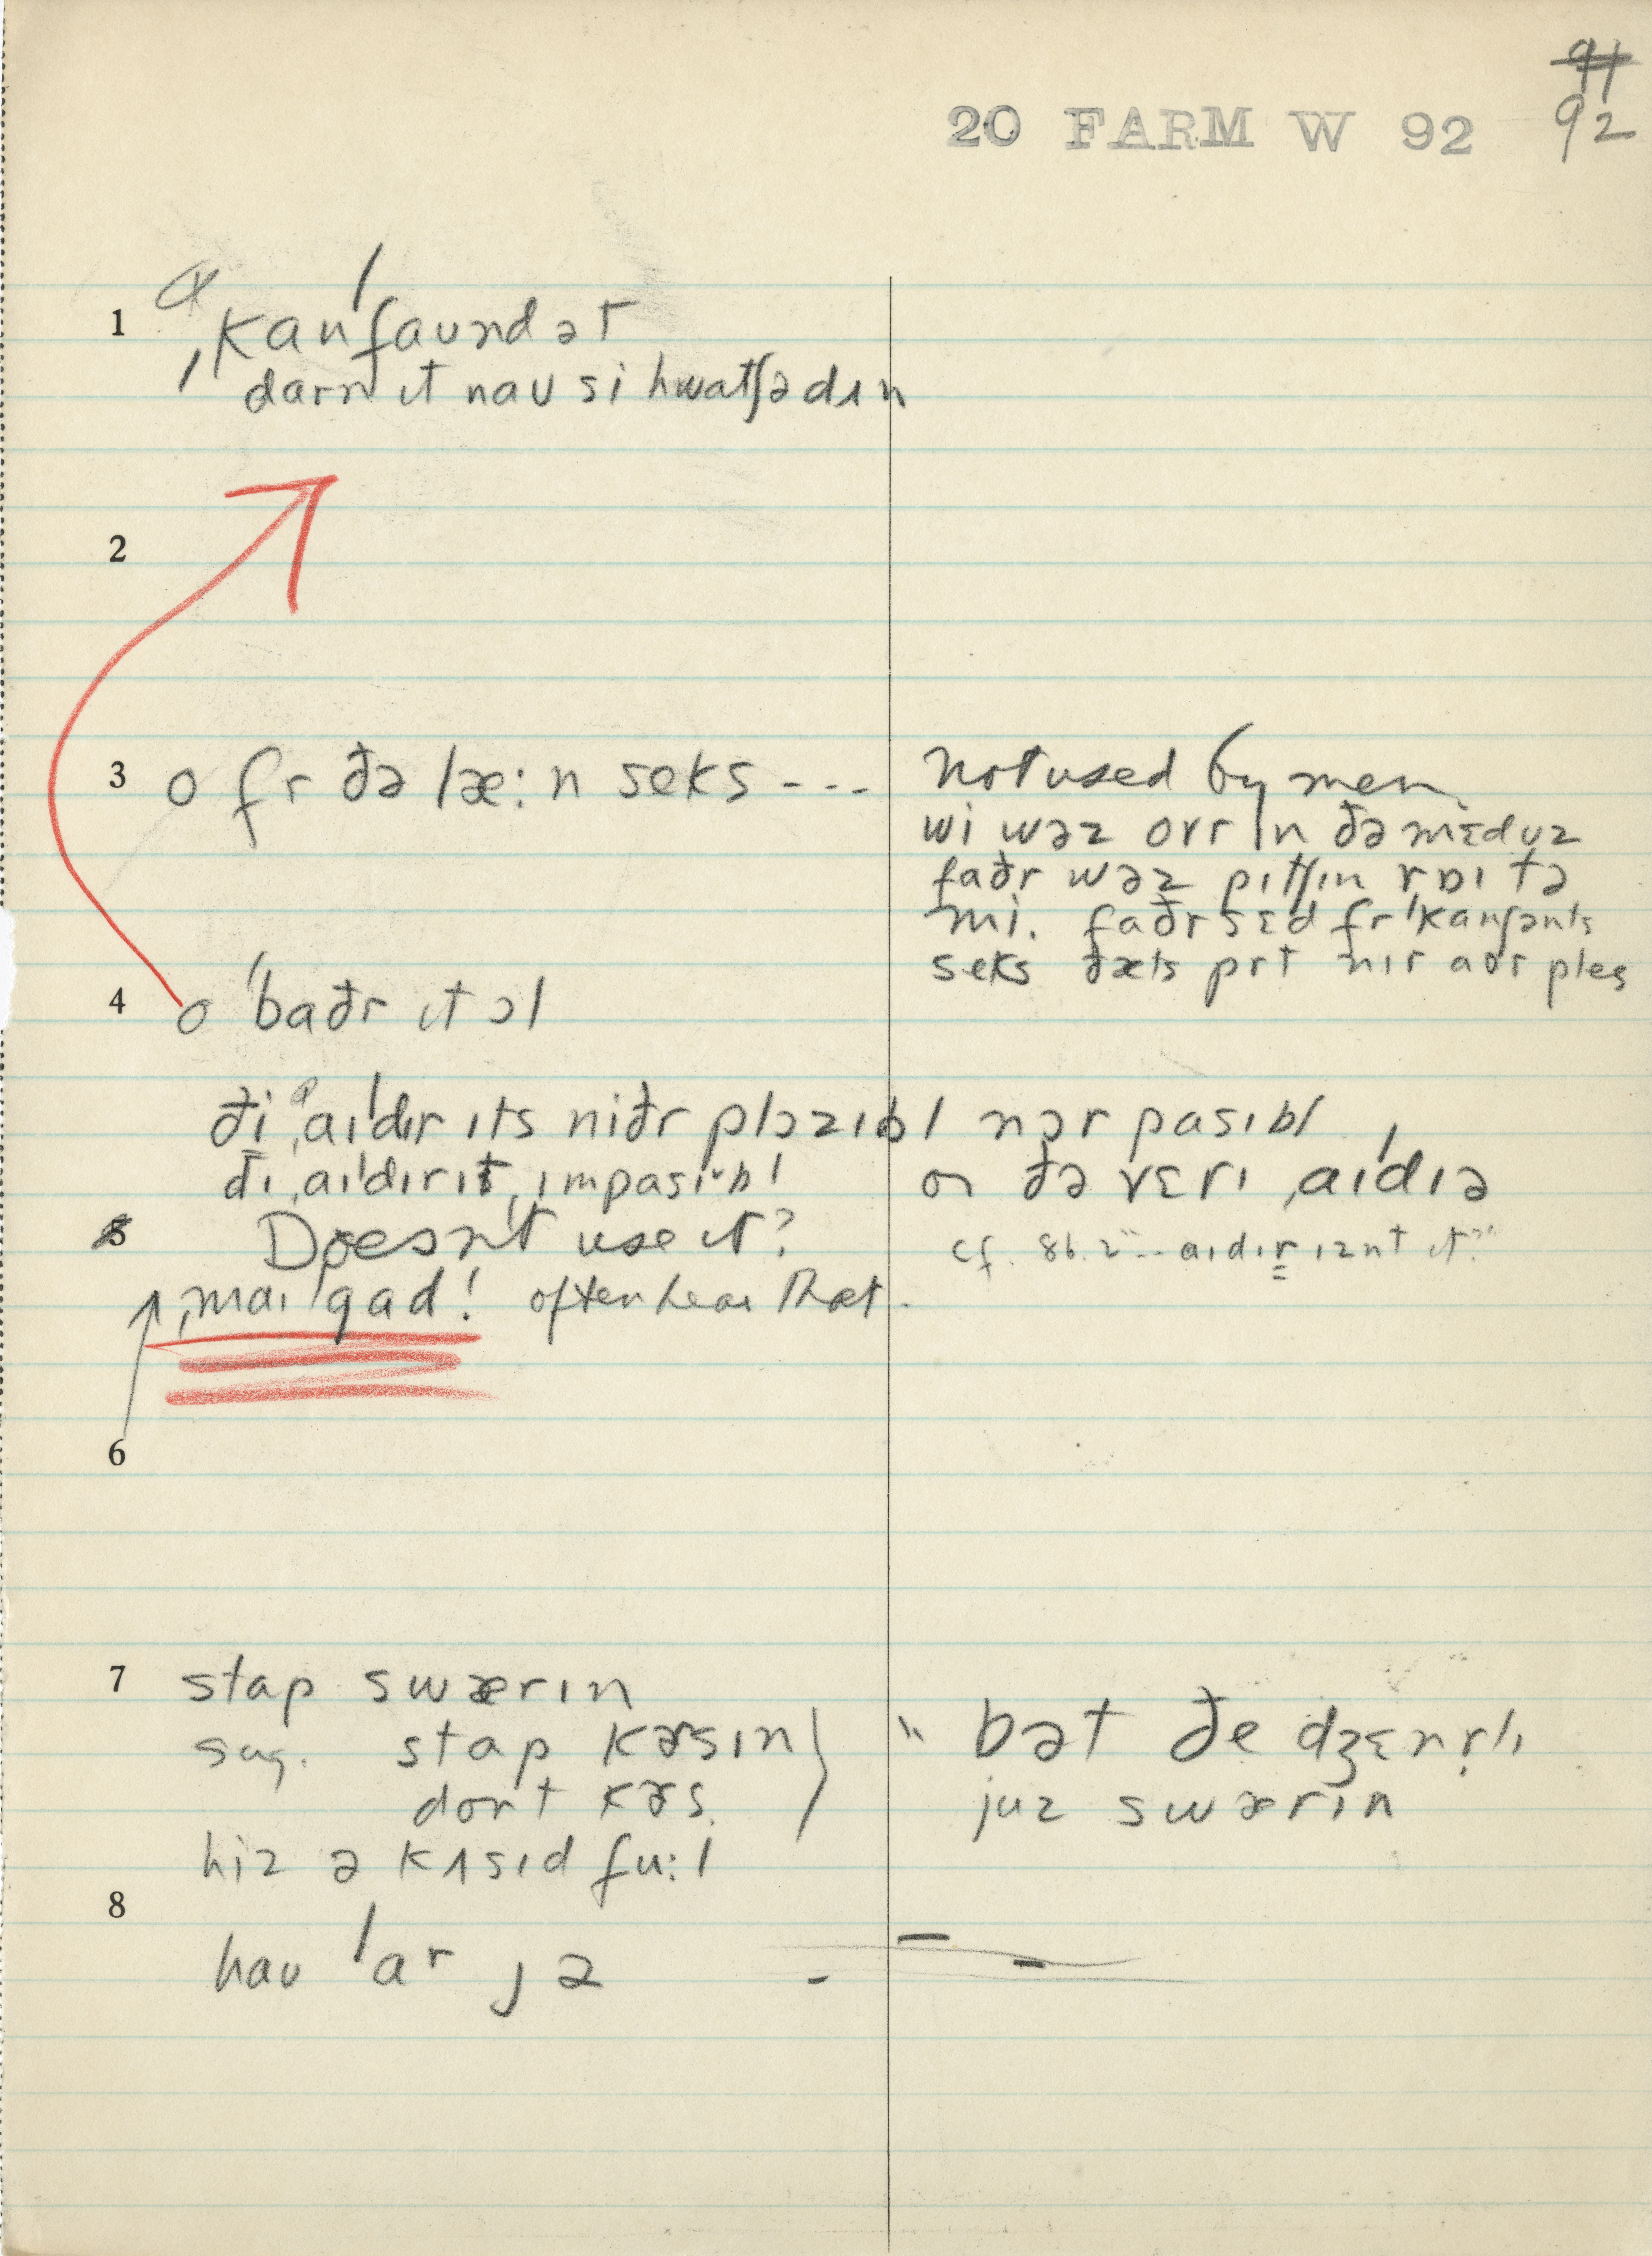 91
92
20 FARM W 92
1 ˌkanˈfaʊndət
darn ɪt naʊ si hwatʃə dɪn
2
3 o fr ðə læ:n seks ---
not used by men
wi wəz ovr ɪn ðə mɛdoz
faðr wəz pɪtʃɪn rɒɪ tə
mi. faðr sɛd fr ˈkanʃənts
seks ðæts prt nɪr aʊr ples
4 o ˈbaðr ɪt ɔl
ði ˌaɪˈdɪr ɪts niðr plɔzɪbl nər pasɪbl
ði ˌaɪˈdɪr ɪt ˌɪmpasɪbl
or ðə vɛrɪ ˌaɪˈdɪə
5 Doesn't use it?
cf. 86.2 "-- aɪdɪr ɪznt ɪt?"
ˌmaɪ ˈgad! often hear that.
6
7 stap swærɪn
sug. stap kɚsɪn
dont kɚs.
" bət ðe dʒɛnrlɪ
juz swærɪn
hiz ə kʌsɪd fu:l
8
haʊ ˈar jə
- - -